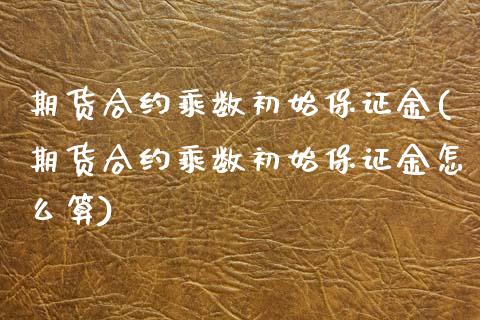 期货合约乘数初始保证金(
期货合约乘数初始保证金怎
么算)